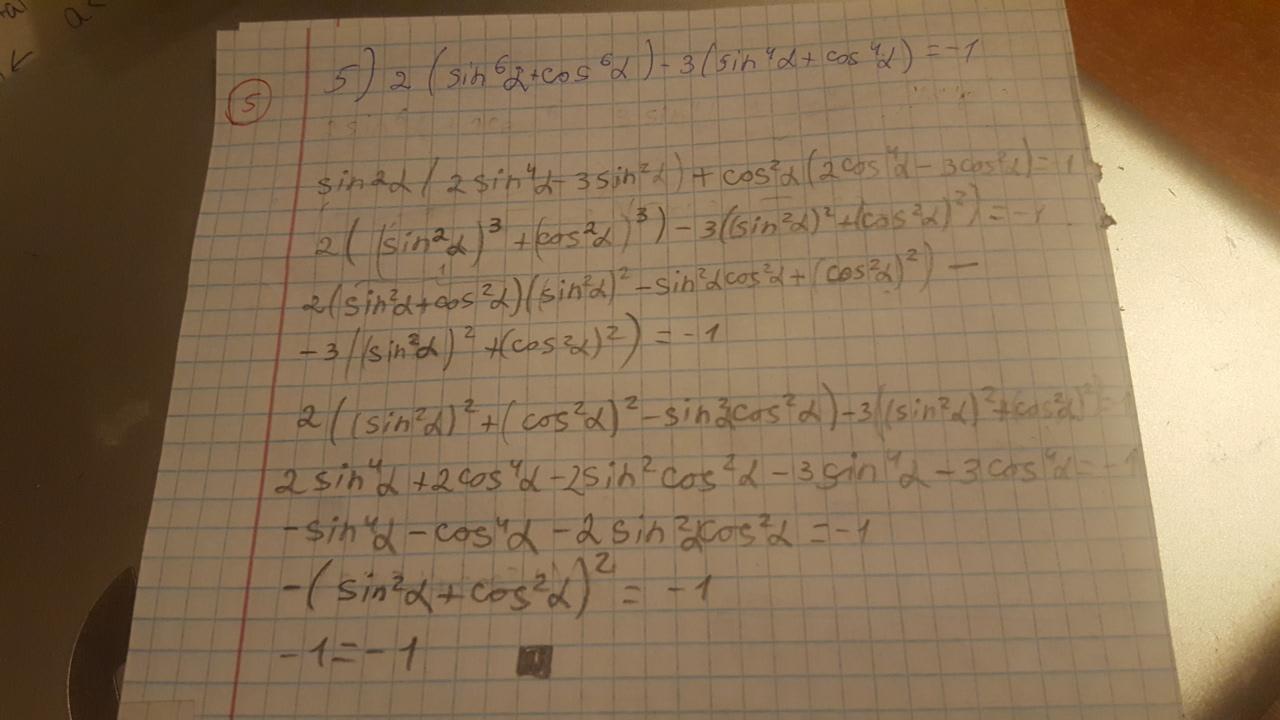 5) 2 (sin⁶α+cos⁶α) - 3(sin⁴α+cos⁴α) = -1
5
sin²α(2sin⁴α-3sin²α)+cos²α(2cos⁴α-3cos²α)=-1
2((sin²α)³+(cos²α)³)-3((sin²α)²+(cos²α)²)=-1
2(sin²α+cos²α)(sin²α)²-sin²αcos²α+(cos²α)²)-
-3((sin²α)²+(cos²α)²)=-1
2((sin²α)²+(cos²α)²-sin²αcos²α)-3((sin²α)²+(cos²α)²)=-1
2sin⁴α+2cos⁴α-2sin²cos²α-3sin⁴α-3cos⁴α=-1
-sin⁴α-cos⁴α-2sin²αcos²α=-1
-(sin²α+cos²α)²=-1
-1=-1